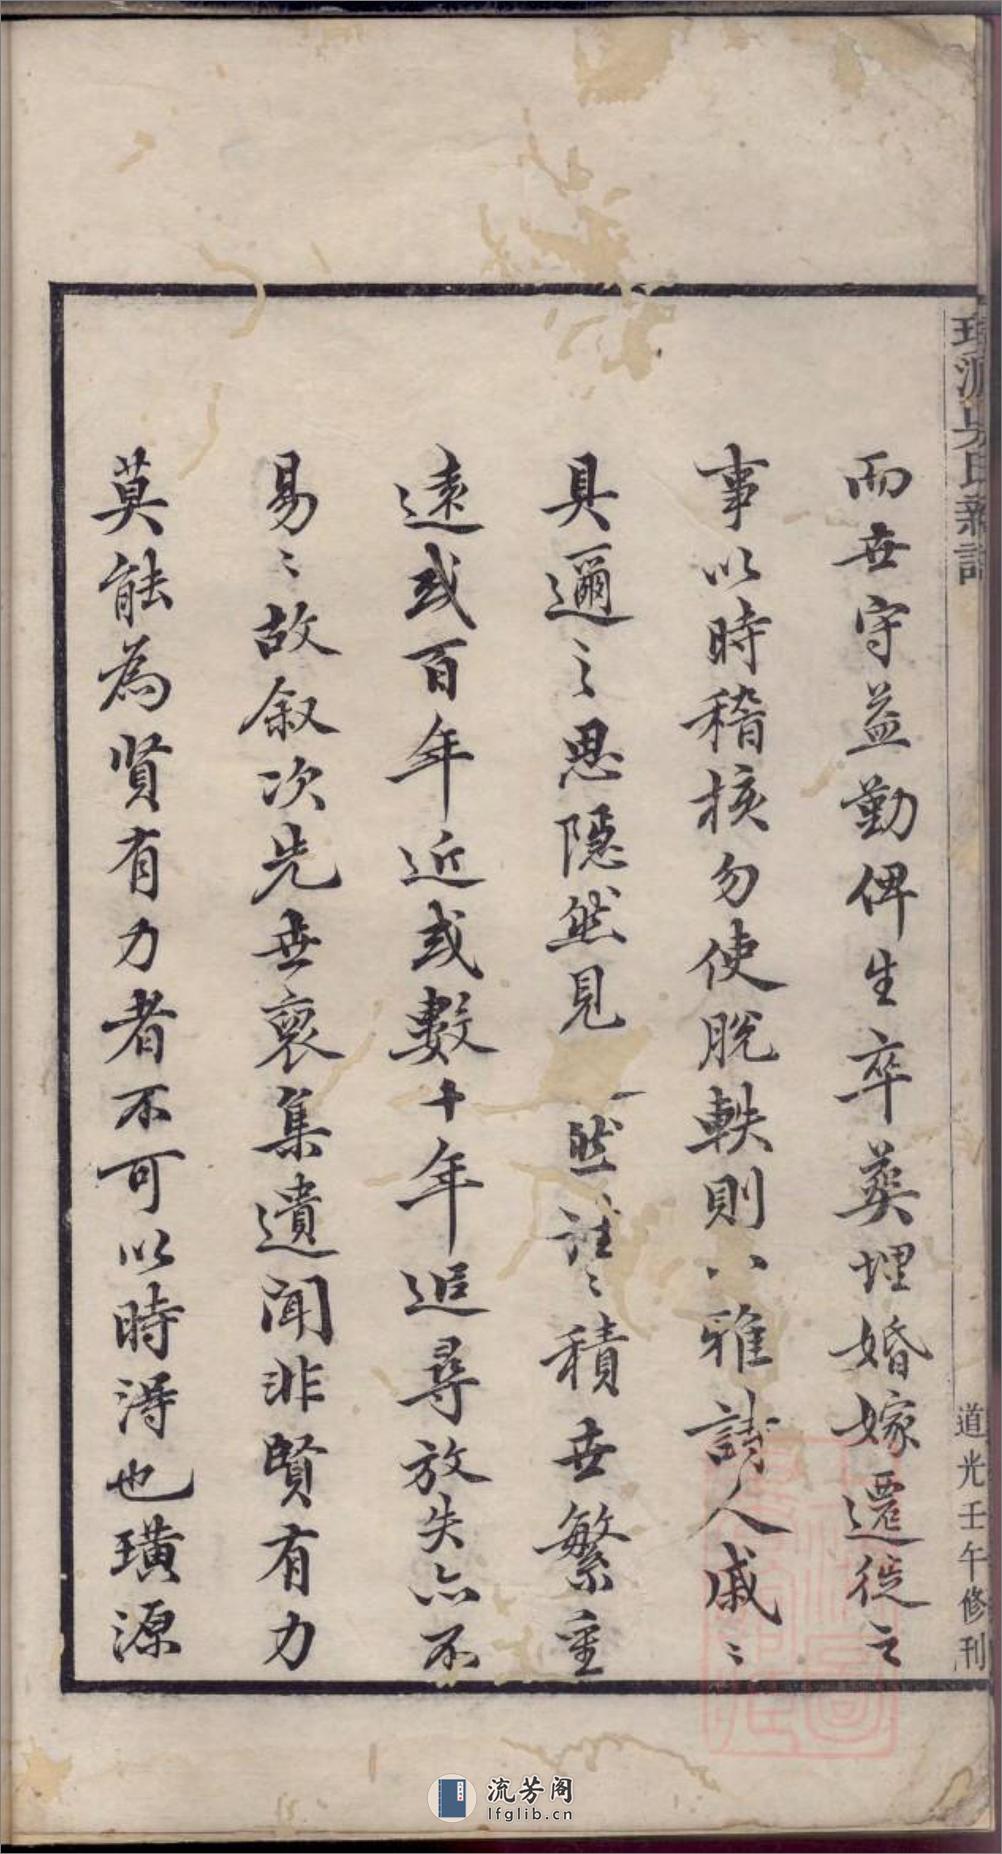 而世守益勤俾生卒葬埋婚嫁遷徙之
事以時稽核勿使脫軼則八雅詩人戚〻
具邇之思隱然見 然譜〻積世繁重
遠或百年近或數十年追尋放失亦不
易〻故叙次先世裒集遺聞非賢有力
莫能為賢有力者不可以時得也璜源
璜源吳氏
道光壬午修刊
流芳阁
lfglib.cn